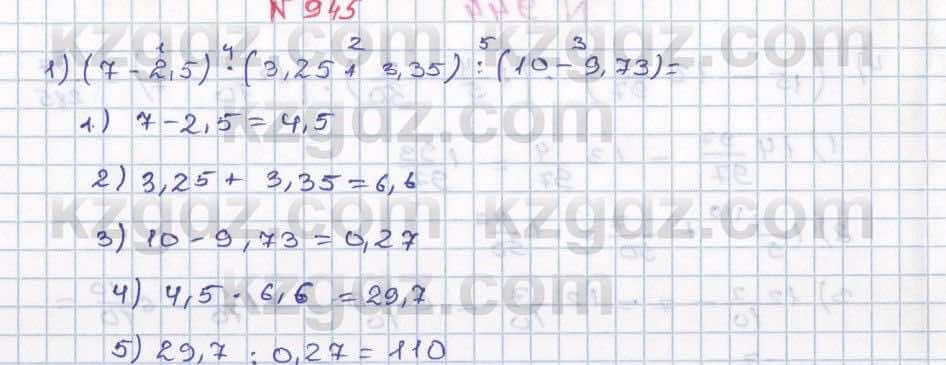 N 945
1) (7 - 2,5) · (3,25 + 3,35) : (10 - 9,73) =
1.) 7 - 2,5 = 4,5
2) 3,25 + 3,35 = 6,6
3) 10 - 9,73 = 0,27
4) 4,5 · 6,6 = 29,7
5) 29,7 : 0,27 = 110
kzgdz.com kzgdz.com
kzgdz.com kzgdz.com
kzgdz.com kzgdz.com
kzgdz.com kzgdz.com